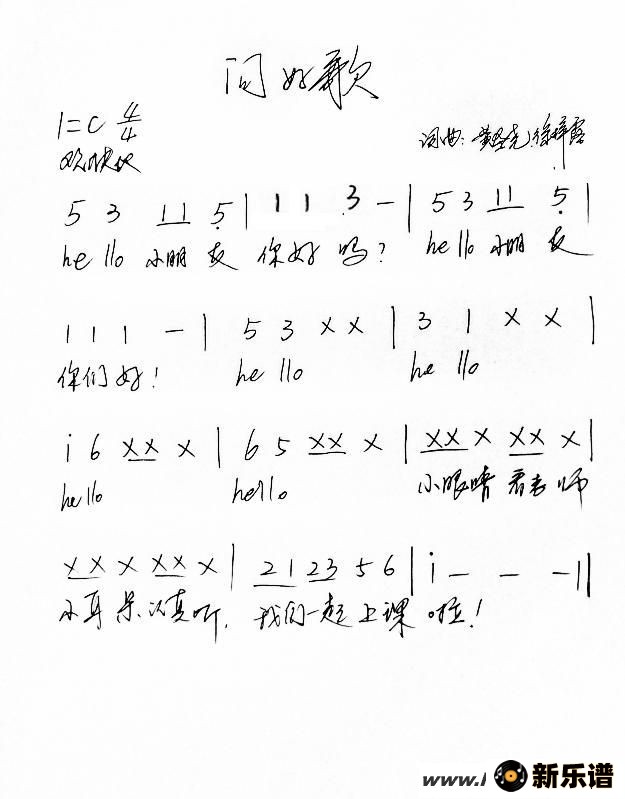 问好歌
1=C 4/4
欢快地
词曲:
5 3 1 1 5 | 1 1 3 - | 5 3 1 1 5 |
hello 小朋友 你好吗? hello 小朋友
1 1 1 - | 5 3 X X | 3 1 X X |
你们好! hello hello
i 6 X X X | 6 5 X X X | X X X X X X |
hello hello 小眼睛 看老师
X X X X X X | 2 1 2 3 5 6 | i - - - ||
小耳朵认真听, 我们一起上课啦!
www.
新乐谱